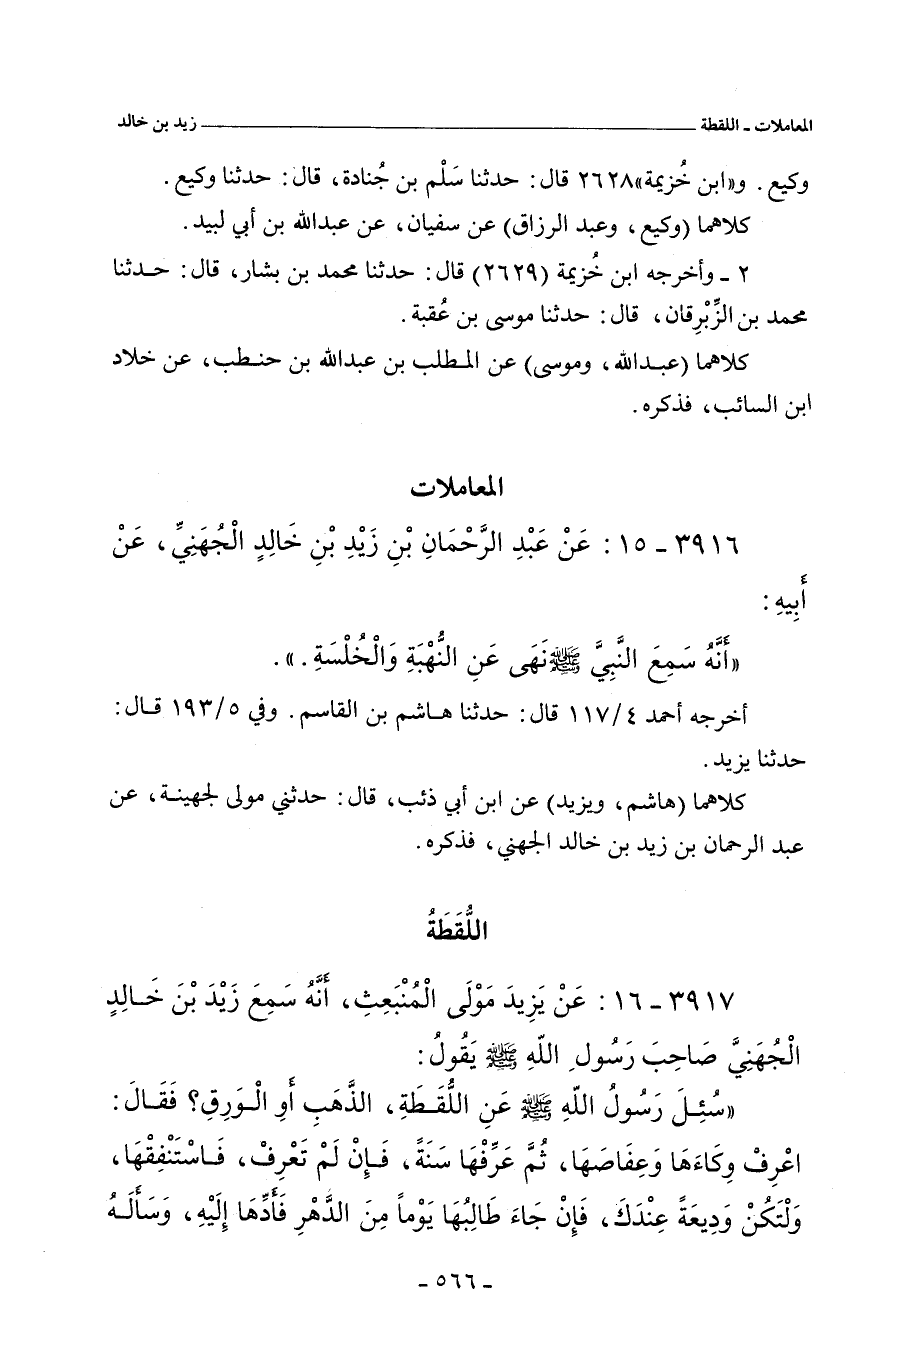 المعاملات ـ اللقطة ـــــــ زيد بن خالد
وكيع. و«ابن خُزيمة»٢٦٢٨ قال: حدثنا سَلْم بن جُنادة، قال: حدثنا وكيع.
كلاهما (وكيع، وعبد الرزاق) عن سفيان، عن عبدالله بن أبي لبيد.
٢ ـ وأخرجه ابن خُزيمة (٢٦٢٩) قال: حدثنا محمد بن بشار، قال: حدثنا
محمد بن الزِّبْرِقان، قال: حدثنا موسى بن عُقبة.
كلاهما (عبدالله، وموسى) عن المطلب بن عبدالله بن حنطب، عن خلاد
ابن السائب، فذكره.
المعاملات
٣٩١٦ ـ ١٥: عَنْ عَبْدِ الرَّحْمَانِ بْنِ زَيْدِ بْنِ خَالِدٍ الْجُهَنِيِّ، عَنْ
أَبِيهِ:
«أَنَّهُ سَمِعَ النَّبِيَّ ﷺ نَهَى عَنِ النُّهْبَةِ وَالْخُلْسَةِ.».
أخرجه أحمد ٤/١١٧ قال: حدثنا هاشم بن القاسم. وفي ٥/١٩٣ قال:
حدثنا يزيد.
كلاهما (هاشم، ويزيد) عن ابن أبي ذئب، قال: حدثني مولى لجهينة، عن
عبد الرحمان بن زيد بن خالد الجهني، فذكره.
اللُّقَطَةُ
٣٩١٧ ـ ١٦: عَنْ يَزِيدَ مَوْلَى الْمُنْبَعِثِ، أَنَّهُ سَمِعَ زَيْدَ بْنَ خَالِدٍ
الْجُهَنِيَّ صَاحِبَ رَسُولِ اللَّهِ ﷺ يَقُولُ:
«سُئِلَ رَسُولُ اللَّهِ ﷺ عَنِ اللُّقَطَةِ، الذَّهَبِ أَوِ الْوَرِقِ؟ فَقَالَ:
اعْرِفْ وِكَاءَهَا وَعِفَاصَهَا، ثُمَّ عَرِّفْهَا سَنَةً، فَإِنْ لَمْ تَعْرِفْ، فَاسْتَنْفِقْهَا،
وَلْتَكُنْ وَدِيعَةً عِنْدَكَ، فَإِنْ جَاءَ طَالِبُهَا يَوْماً مِنَ الدَّهْرِ فَأَدِّهَا إِلَيْهِ، وَسَأَلَهُ
ـ ٥٦٦ ـ